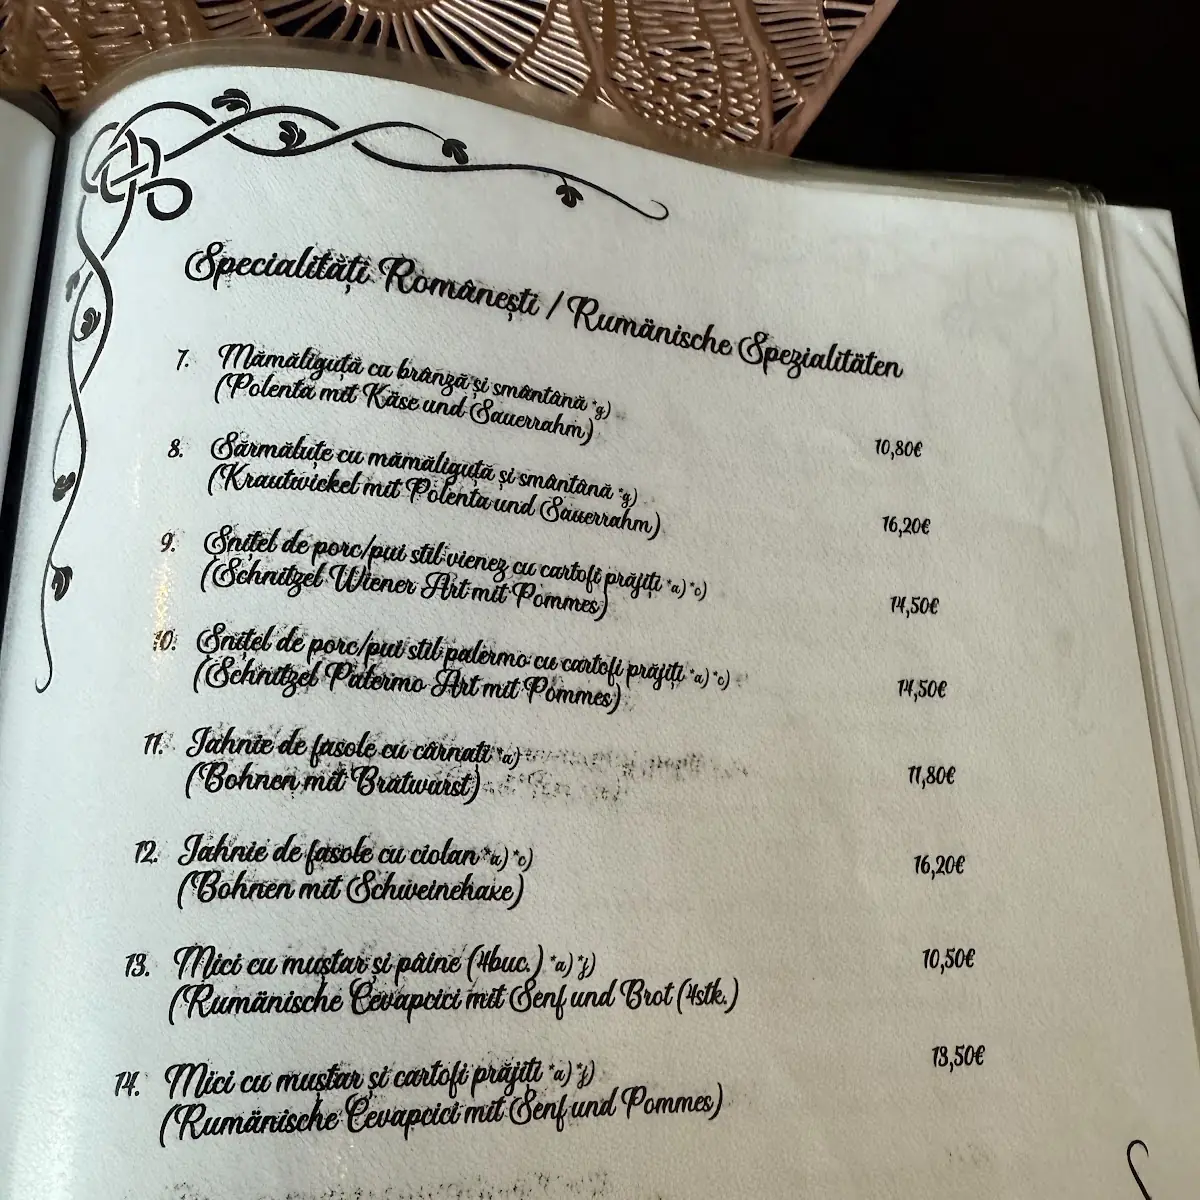 Specialități Românești / Rumänische Spezialitäten
7. Mămăliguță cu brânză și smântână *g)
(Polenta mit Käse und Sauerrahm)
10,80€
8. Sărmăluțe cu mămăliguță și smântână *g)
(Krautwickel mit Polenta und Sauerrahm)
16,20€
9. Snițel de porc/pui stil vienez cu cartofi prăjiți *a) *c)
(Schnitzel Wiener Art mit Pommes)
14,50€
10. Snițel de porc/pui stil palermo cu cartofi prăjiți *a) *c)
(Schnitzel Palermo Art mit Pommes)
14,50€
11. Iahnie de fasole cu cârnați *a)
(Bohnen mit Bratwurst)
11,80€
12. Iahnie de fasole cu ciolan *a) *c)
(Bohnen mit Schweinehaxe)
16,20€
13. Mici cu muștar și pâine (4buc.) *a) *j)
(Rumänische Cevapcici mit Senf und Brot (4stk.)
10,50€
14. Mici cu muștar și cartofi prăjiți *a) *j)
(Rumänische Cevapcici mit Senf und Pommes)
13,50€